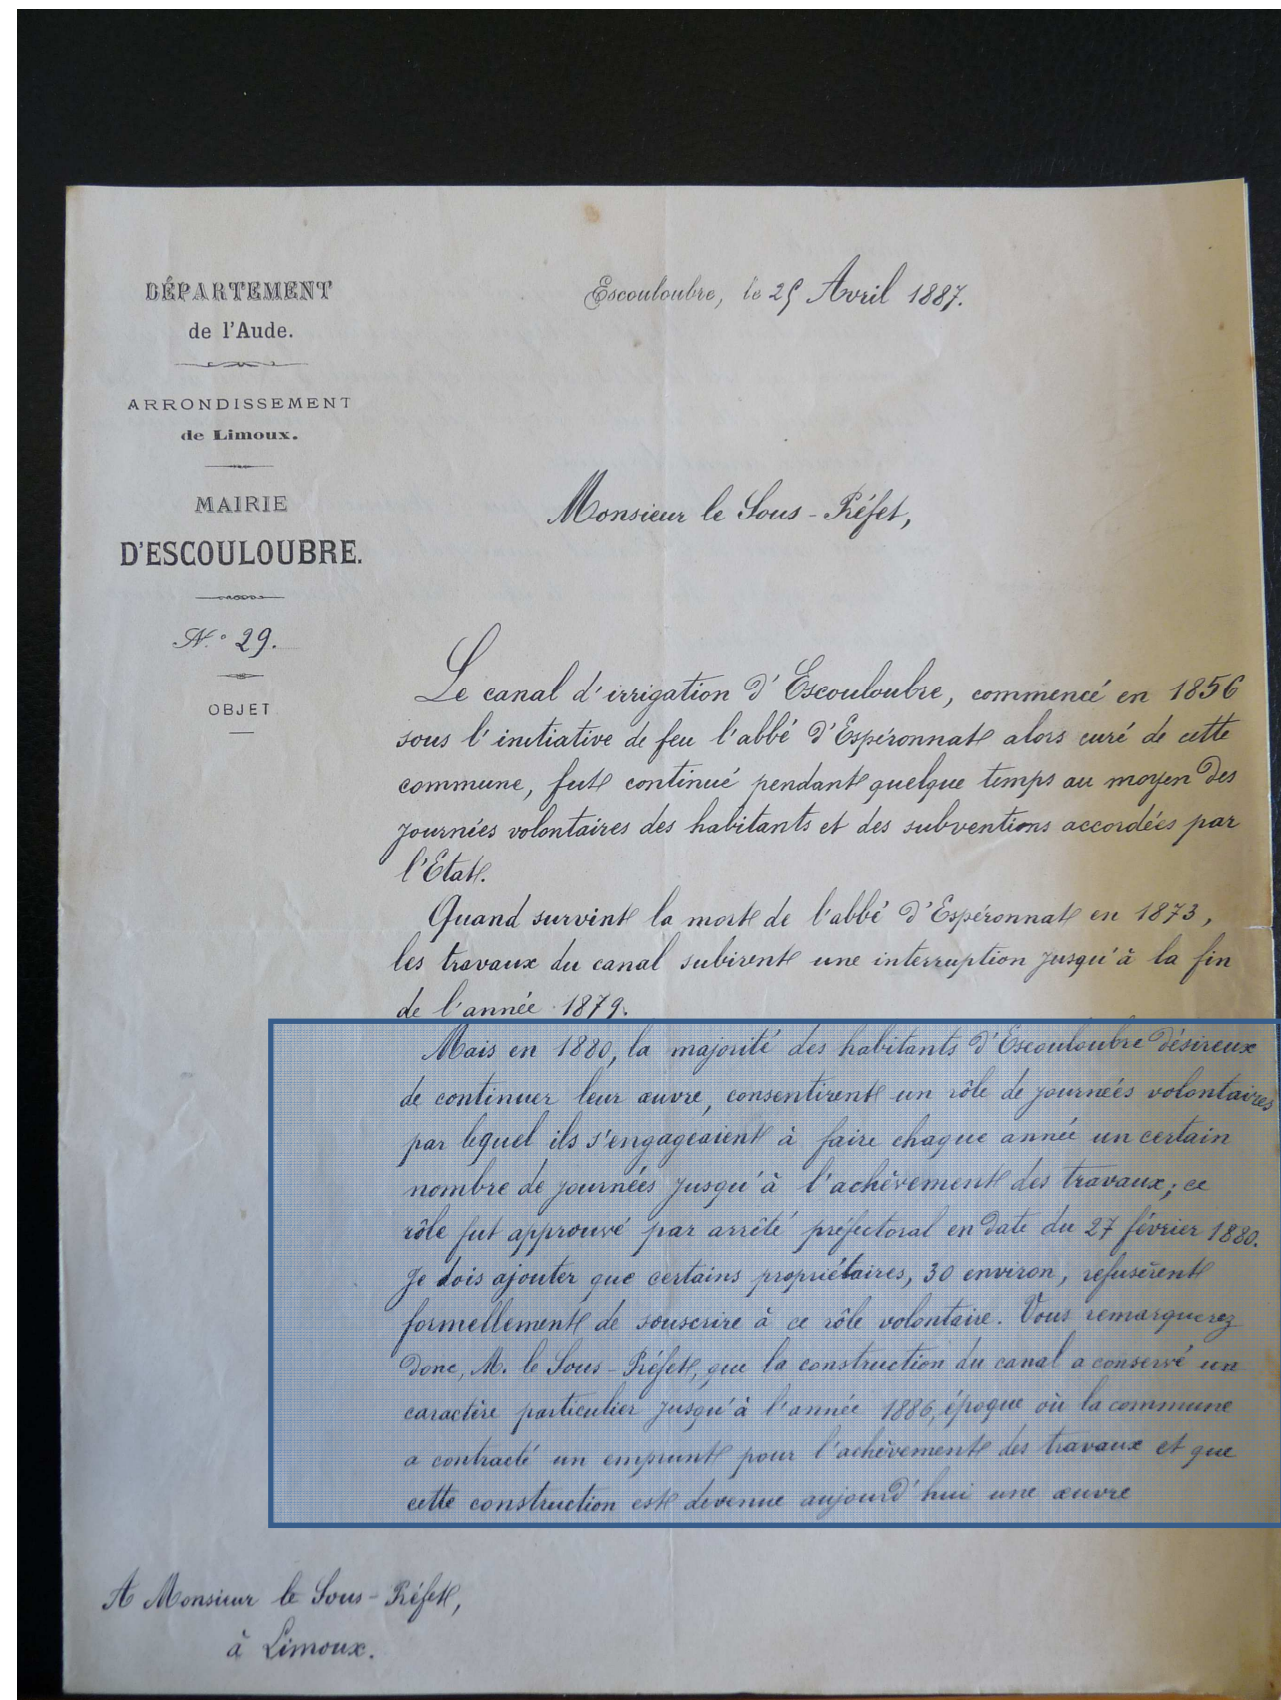 DÉPARTEMENT
de l'Aude.
ARRONDISSEMENT
de Limoux.
MAIRIE
D'ESCOULOUBRE.
N.° 29.
OBJET
Escouloubre, le 25 Avril 1887.
Monsieur le Sous-Préfet,
Le canal d'irrigation d'Escouloubre, commencé en 1856
sous l'initiative de feu l'abbé d'Espéronnat alors curé de cette
commune, fut continué pendant quelque temps au moyen des
journées volontaires des habitants et des subventions accordées par
l'Etat.
Quand survint la mort de l'abbé d'Espéronnat en 1873,
les travaux du canal subirent une interruption jusqu'à la fin
de l'année 1879.
Mais en 1880, la majorité des habitants d'Escouloubre désireux
de continuer leur œuvre, consentirent un rôle de journées volontaires
par lequel ils s'engageaient à faire chaque année un certain
nombre de journées jusqu'à l'achèvement des travaux; ce
rôle fut approuvé par arrêté préfectoral en date du 27 février 1880.
Je dois ajouter que certains propriétaires, 30 environ, refusèrent
formellement de souscrire à ce rôle volontaire. Vous remarquerez
donc, M. le Sous-Préfet, que la construction du canal a conservé un
caractère particulier jusqu'à l'année 1886, époque où la commune
a contracté un emprunt pour l'achèvement des travaux et que
cette construction est devenue aujourd'hui une œuvre
A Monsieur le Sous-Préfet,
à Limoux.